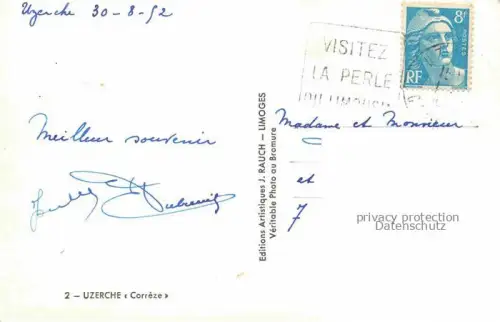 Uzerche 30-8-52
VISITEZ
LA PERLE
DU LIMOUSIN
8F
POSTES
RF
Meilleur souvenir
Madame et Monsieur
et
7
Editions Artistiques J. RAUCH - LIMOGES
Véritable Photo au Bromure
privacy protection
Datenschutz
2 - UZERCHE « Corrèze »